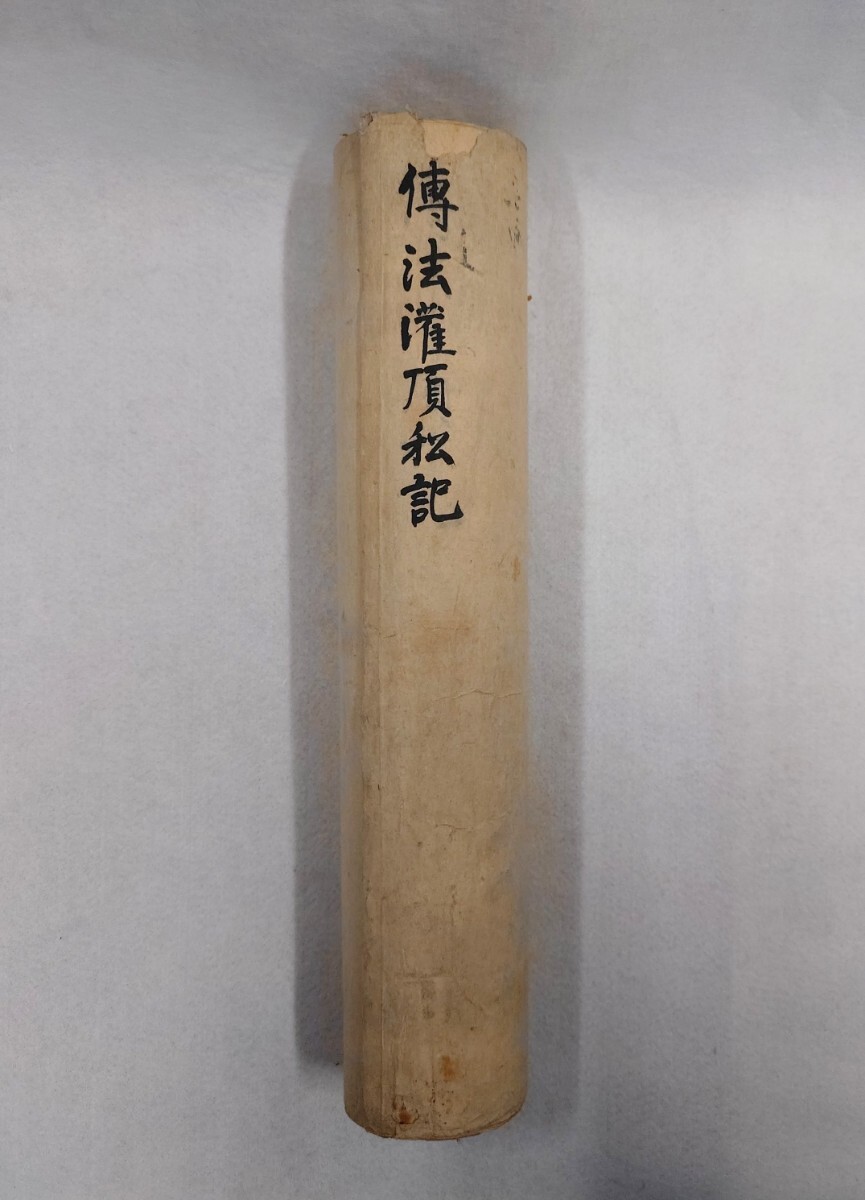 傳法灌頂私記